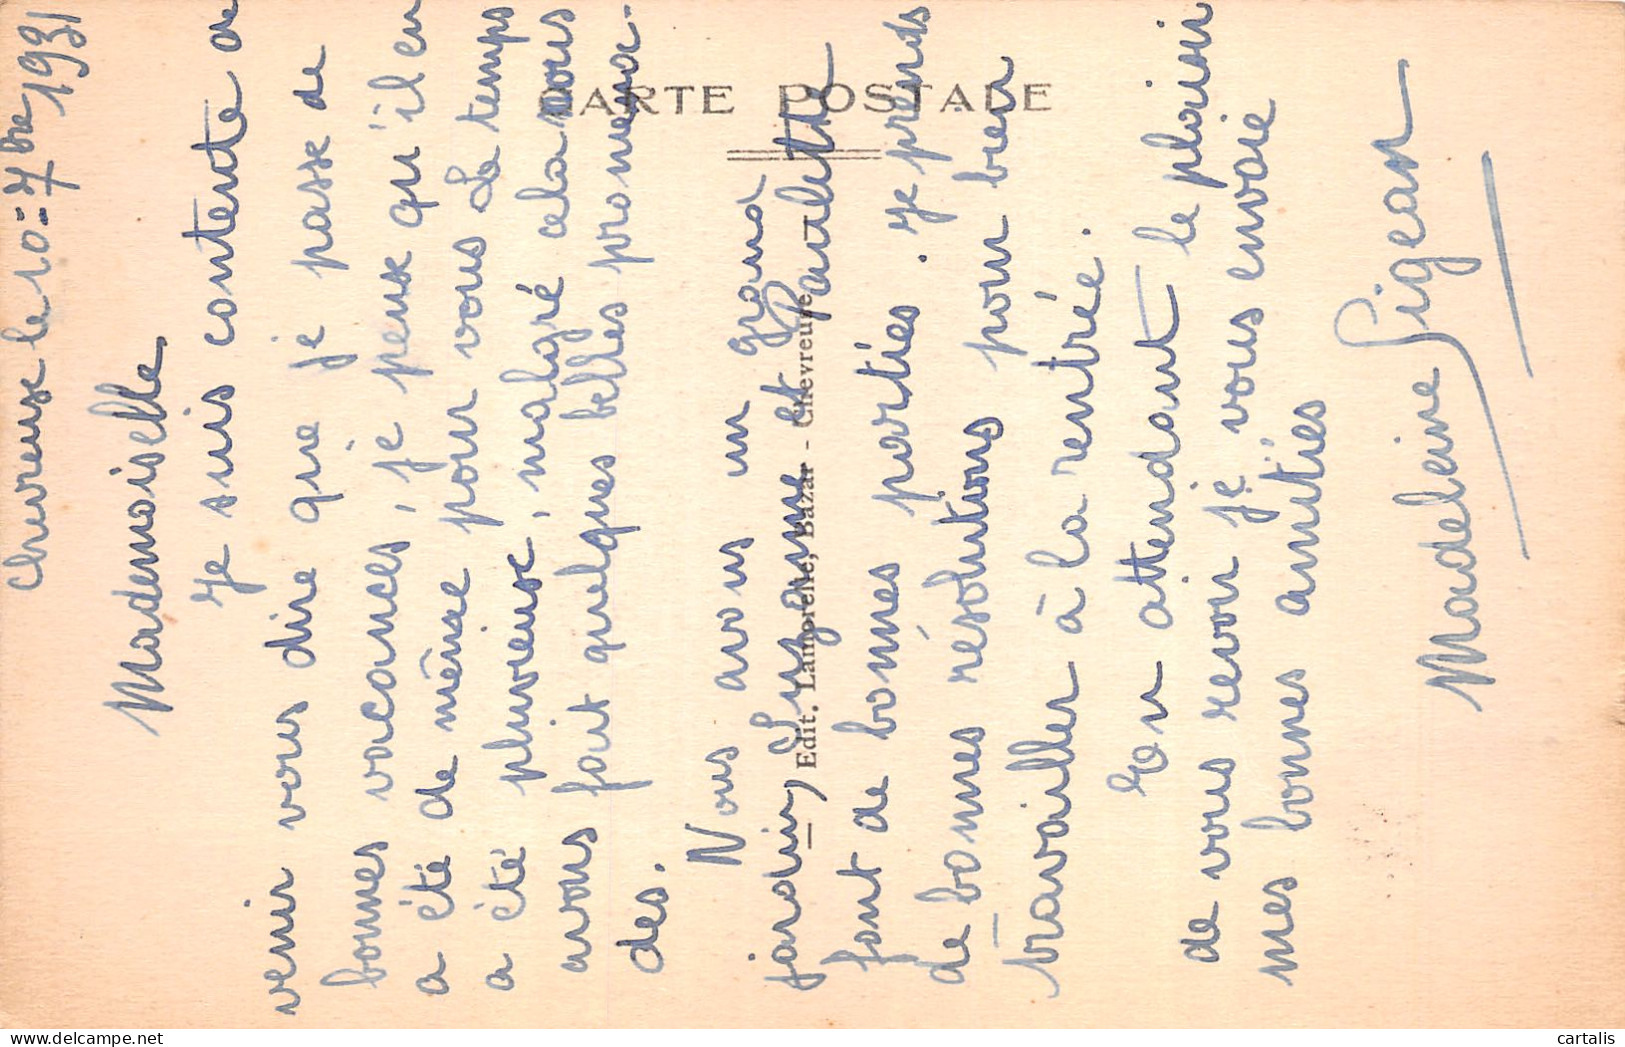 Chevreuse le 10=7bre 1931
Mademoiselle
Je suis contente de
venir vous dire que je passe de
bonnes vacances, je pense qu'il en
a été de même pour vous Le temps
a été pluvieux, malgré cela nous
avons fait quelques belles promena-
des.
Nous avons un grand
jardin, Suzanne et Paulette
font de bonnes parties. Je prends
de bonnes résolutions pour bien
travailler à la rentrée.
En attendant le plaisir
de vous revoir je vous envoie
mes bonnes amitiés
Madeleine Sigean
CARTE POSTALE
Edit. Lamorelle, Bazar - Chevreuse
cartalis